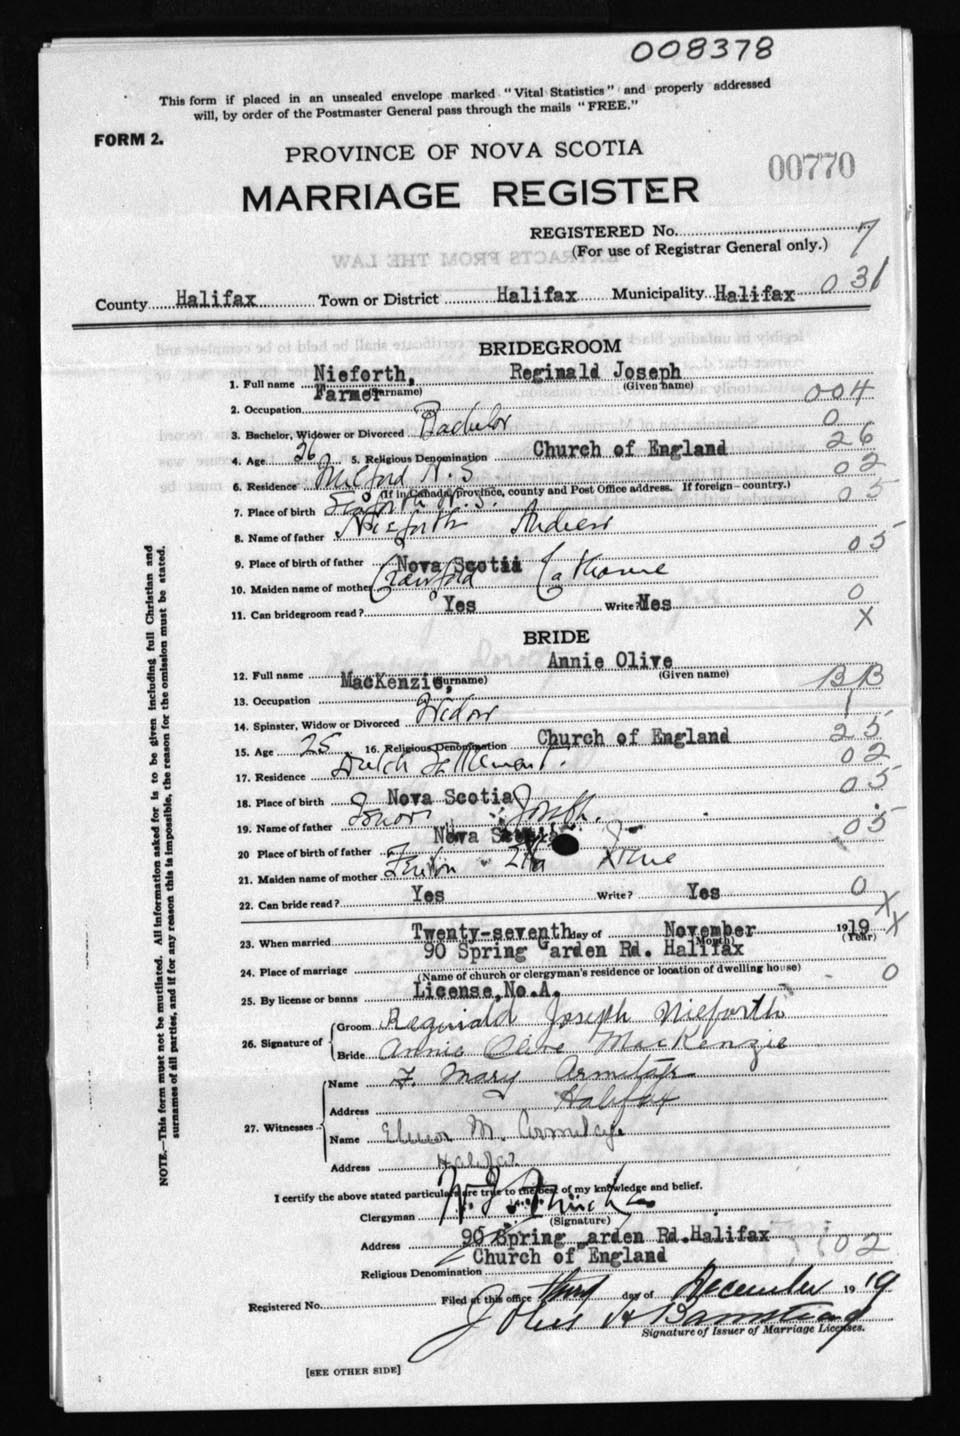 008378
This form if placed in an unsealed envelope marked "Vital Statistics" and properly addressed
will, by order of the Postmaster General pass through the mails "FREE."
FORM 2.
PROVINCE OF NOVA SCOTIA
00770
MARRIAGE REGISTER
REGISTERED No.
(For use of Registrar General only.) 7
EXTRACTS FROM THE LAW
County Halifax Town or District Halifax Municipality Halifax 031
BRIDEGROOM
1. Full name Nieforth, Reginald Joseph
(Surname) (Given name)
2. Occupation Farmer 004
3. Bachelor, Widower or Divorced Bachelor 0
4. Age 26 5. Religious Denomination Church of England 26
6. Residence Milford N.S 02
(If in Canada, province, county and Post Office address. If foreign - country.)
7. Place of birth Seaforth N.S. 05
8. Name of father Nieforth Andrew
9. Place of birth of father Nova Scotia 05
10. Maiden name of mother Crawford Catherine
11. Can bridegroom read? Yes Write? Yes 0
X
BRIDE
12. Full name MacKenzie, Annie Olive
(Surname) (Given name)
13. Occupation BB
14. Spinster, Widow or Divorced Widow 1
15. Age 25 16. Religious Denomination Church of England 25
17. Residence Dutch Settlement. 02
18. Place of birth Nova Scotia 05
19. Name of father Joseph.
20 Place of birth of father Nova Scotia 05
21. Maiden name of mother
22. Can bride read? Yes Write? Yes 0
X
23. When married Twenty-seventh day of November 1919 X
(Month) (Year)
24. Place of marriage 90 Spring Garden Rd. Halifax
(Name of church or clergyman's residence or location of dwelling house) 0
25. By license or banns License, No.A.
26. Signature of Groom Reginald Joseph Nieforth
Bride Annie Olive MacKenzie
27. Witnesses
Name F. Mary Armitage
Address Halifax
Name Elinor M. Armitage
Address Halifax
I certify the above stated particulars are true to the best of my knowledge and belief.
Clergyman
(Signature)
Address 90 Spring Garden Rd. Halifax
Religious Denomination Church of England
Registered No. Filed at this office third day of December 1919
Signature of Issuer of Marriage Licenses.
[SEE OTHER SIDE]
NOTE.—This form must not be mutilated. All information asked for is to be given including full Christian and
surnames of all parties, and if for any reason this is impossible, the reason for the omission must be stated.